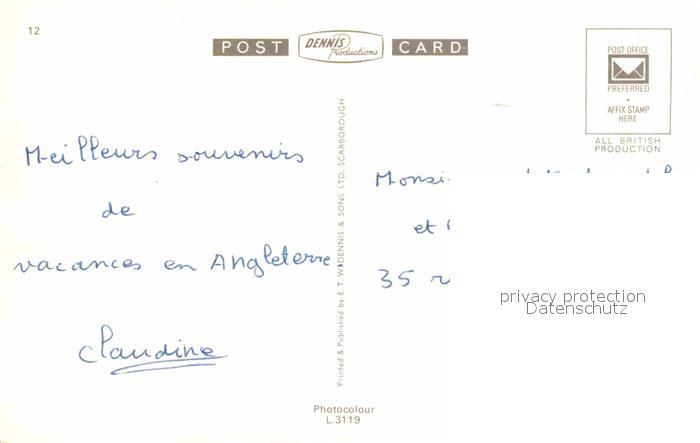 12
POST DENNIS Productions CARD
POST OFFICE
PREFERRED
AFFIX STAMP
HERE
ALL BRITISH
PRODUCTION
Meilleurs souvenirs
de
vacances en Angleterre
Claudine
Printed & Published by E. T. W. DENNIS & SONS LTD. SCARBOROUGH
et
35 r
privacy protection
Datenschutz
Photocolour
L.3119